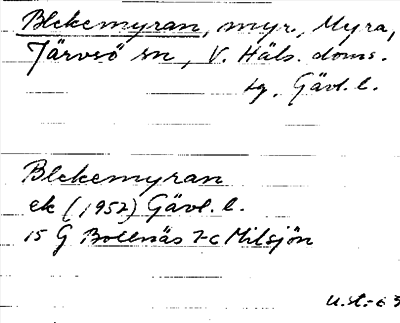 Blekemyran, myr, Myra,
Järvsö sn, V. Häls. doms.
sg. Gävl. l.
Blekemyran
ek (1952) Gävl. l.
15 G Bollnäs 7c Milsjön
U.st.-63